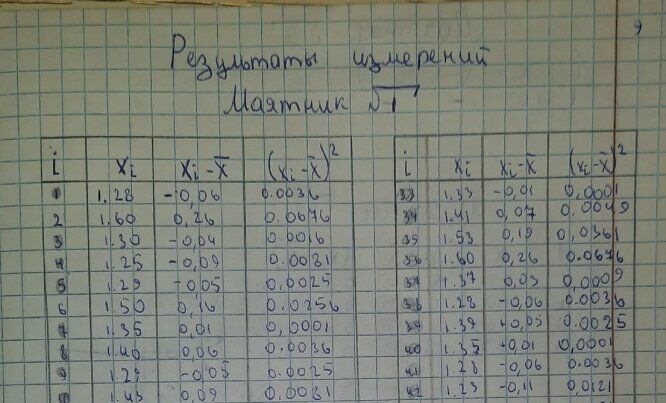 Результаты измерений
Маятник √1
i xᵢ xᵢ-x̄ (xᵢ-x̄)² i xᵢ xᵢ-x̄ (xᵢ-x̄)²
1.28 -0,06 0.0036 33 1.33 -0,01 0,0001
2 1.60 0,26 0.0676 34 1.41 0,07 0.0049
3 1.30 -0,04 0.0016 35 1.53 0,19 0,0361
4 1.25 -0,09 0.0081 36 1.60 0,26 0.0676
5 1.29 -0,05 0,0025 37 1.37 0,03 0,0009
6 1.50 0,16 0.0256 38 1.28 -0,06 0.0036
7 1.35 0,01 0,0001 39 1.39 +0,05 0.0025
8 1.40 0,06 0.0036 40 1.35 -0,01 0,0001
9 1.29 -0,05 0.0025 41 1.28 -0,06 0.0036
1.43 0,09 0.0081 42 1.23 -0,11 0,0121